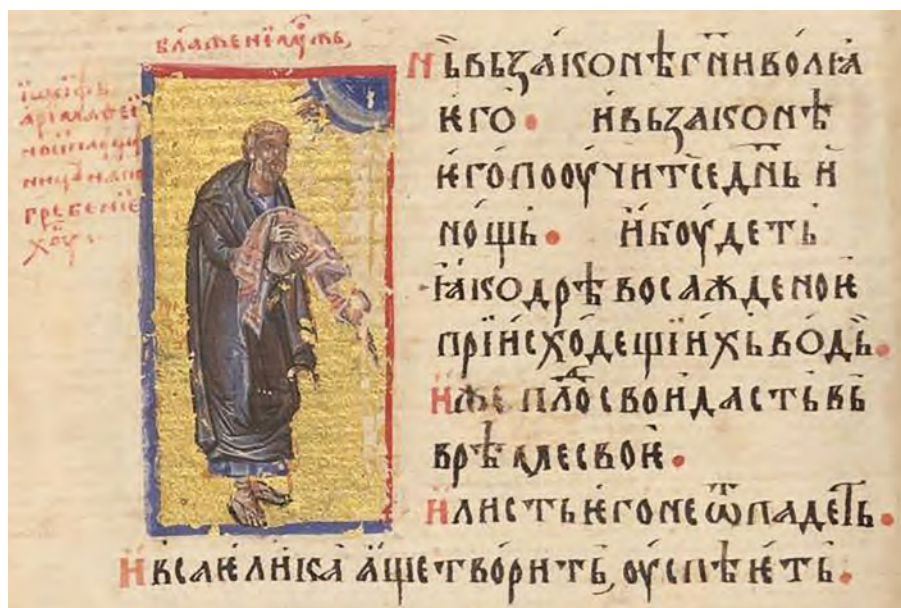 блⷤажени моужь,
їѡсифь
аримаѳеі
погребенїе
хⷭ҇ѹ
Нь вьзаконѣ гⷭ҇ни волꙗ
ѥго • И вьзаконѣ
ѥго пооучитсе дн҃ь и
нощь • И боудеть
ꙗко дрѣво сажденоѥ
при исходещїихь водь •
Иже плоⷣ свои дасть вь
врѣме своѥ •
И листь ѥго не ѿпадеть •
И всꙗ ѥлика аще творить, оуспѣѥть •